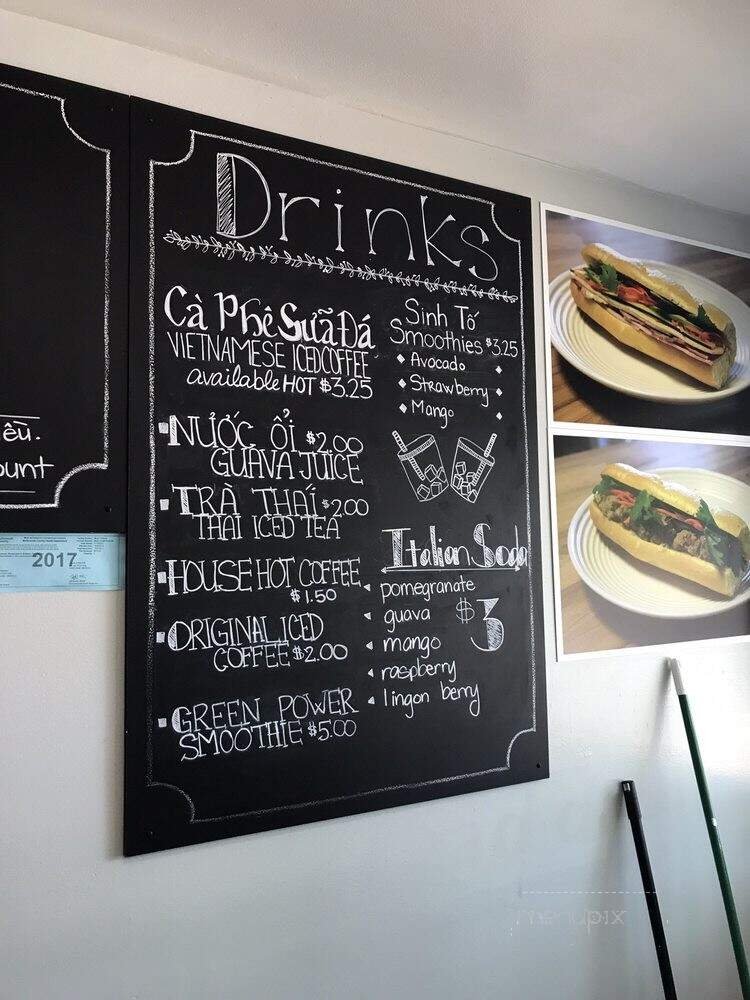 Drinks
Cà Phê Sữa Đá
VIETNAMESE ICED COFFEE
available HOT $3.25
NƯỚC ỔI $2.00
GUAVA JUICE
TRÀ THÁI $2.00
THAI ICED TEA
HOUSE HOT COFFEE
$1.50
ORIGINAL ICED
COFFEE $2.00
GREEN POWER
SMOOTHIE $5.00
Sinh Tố
Smoothies $3.25
Avocado
Strawberry
Mango
Italian Soda
pomegranate
guava
$3
mango
raspberry
lingon berry
ount
2017
menupix